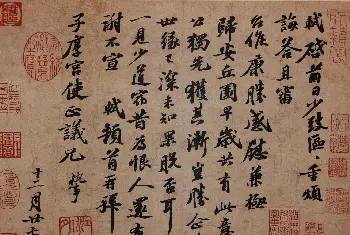 軾啓前日少致區區重煩
誨答且審
台候康勝感慰兼極
歸安丘園早歲共有此意
公獨先獲其漸豈勝企
世緣已深未知果脫否耳
一見少道宿昔為恨人還布
謝不宣 軾頓首再拜
子厚宮使正議兄執事
十二月廿七